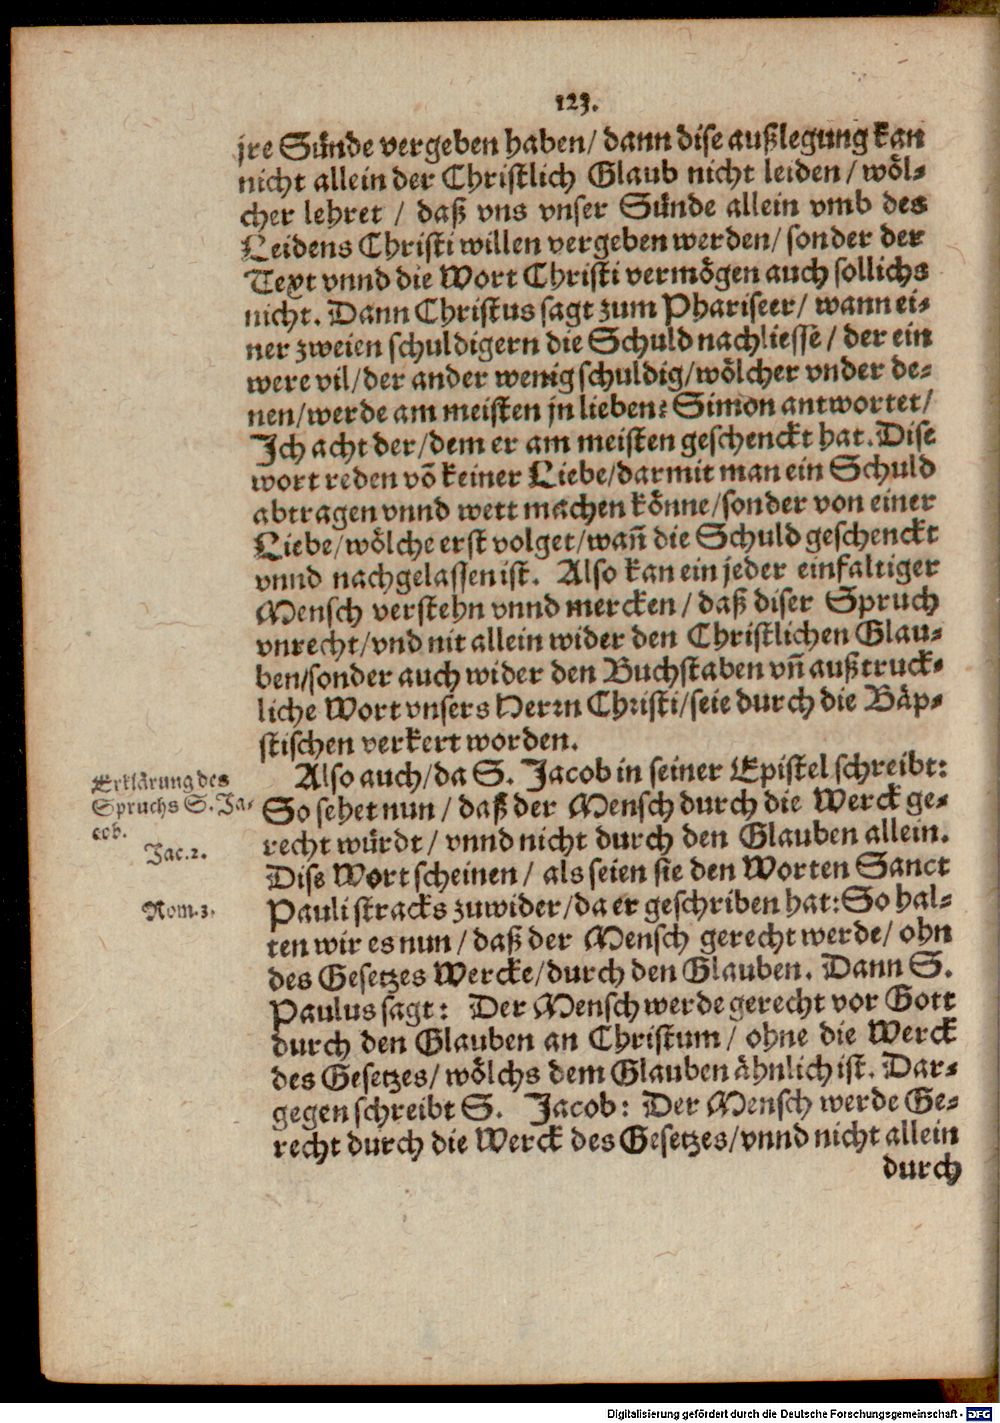 123.
jre Sünde vergeben haben/ dann dise außlegung kan
nicht allein der Christlich Glaub nicht leiden / wöl-
cher lehret / daß vns vnser Sünde allein vmb des
Leidens Christi willen vergeben werden/ sonder der
Text vnnd die Wort Christi vermögen auch sollichs
nicht. Dann Christus sagt zum Phariseer/ wann ei-
ner zweien schuldigern die Schuld nachliesse / der ein
were vil/der ander wenig schuldig/wölcher vnder de-
nen/werde am meisten jn lieben? Simon antwortet/
Ich acht der/dem er am meisten geschenckt hat. Dise
wort reden võ keiner Liebe/darmit man ein Schuld
abtragen vnnd wett machen könne/sonder von einer
Liebe/wölche erst volget/wañ die Schuld geschenckt
vnnd nachgelassen ist. Also kan ein jeder einfaltiger
Mensch verstehn vnnd mercken / daß diser Spruch
vnrecht/vnd nit allein wider den Christlichen Glau-
ben/sonder auch wider den Buchstaben vñ außtruck-
liche Wort vnsers Herrn Christi/seie durch die Bäp-
stischen verkert worden.
Erklärung des
Spruchs S. Ja-
cob.
Jac.2.
Rom.3.
Also auch/da S. Jacob in seiner Epistel schreibt:
So sehet nun / daß der Mensch durch die Werck ge-
recht würdt / vnnd nicht durch den Glauben allein.
Dise Wort scheinen / als seien sie den Worten Sanct
Pauli stracks zuwider/da er geschriben hat: So hal-
ten wir es nun / daß der Mensch gerecht werde/ ohn
des Gesetzes Wercke/durch den Glauben. Dann S.
Paulus sagt: Der Mensch werde gerecht vor Gott
durch den Glauben an Christum / ohne die Werck
des Gesetzes/ wölchs dem Glauben ähnlich ist. Dar-
gegen schreibt S. Jacob: Der Mensch werde Ge-
recht durch die Werck des Gesetzes/vnnd nicht allein
durch
Digitalisierung gefördert durch die Deutsche Forschungsgemeinschaft - DFG